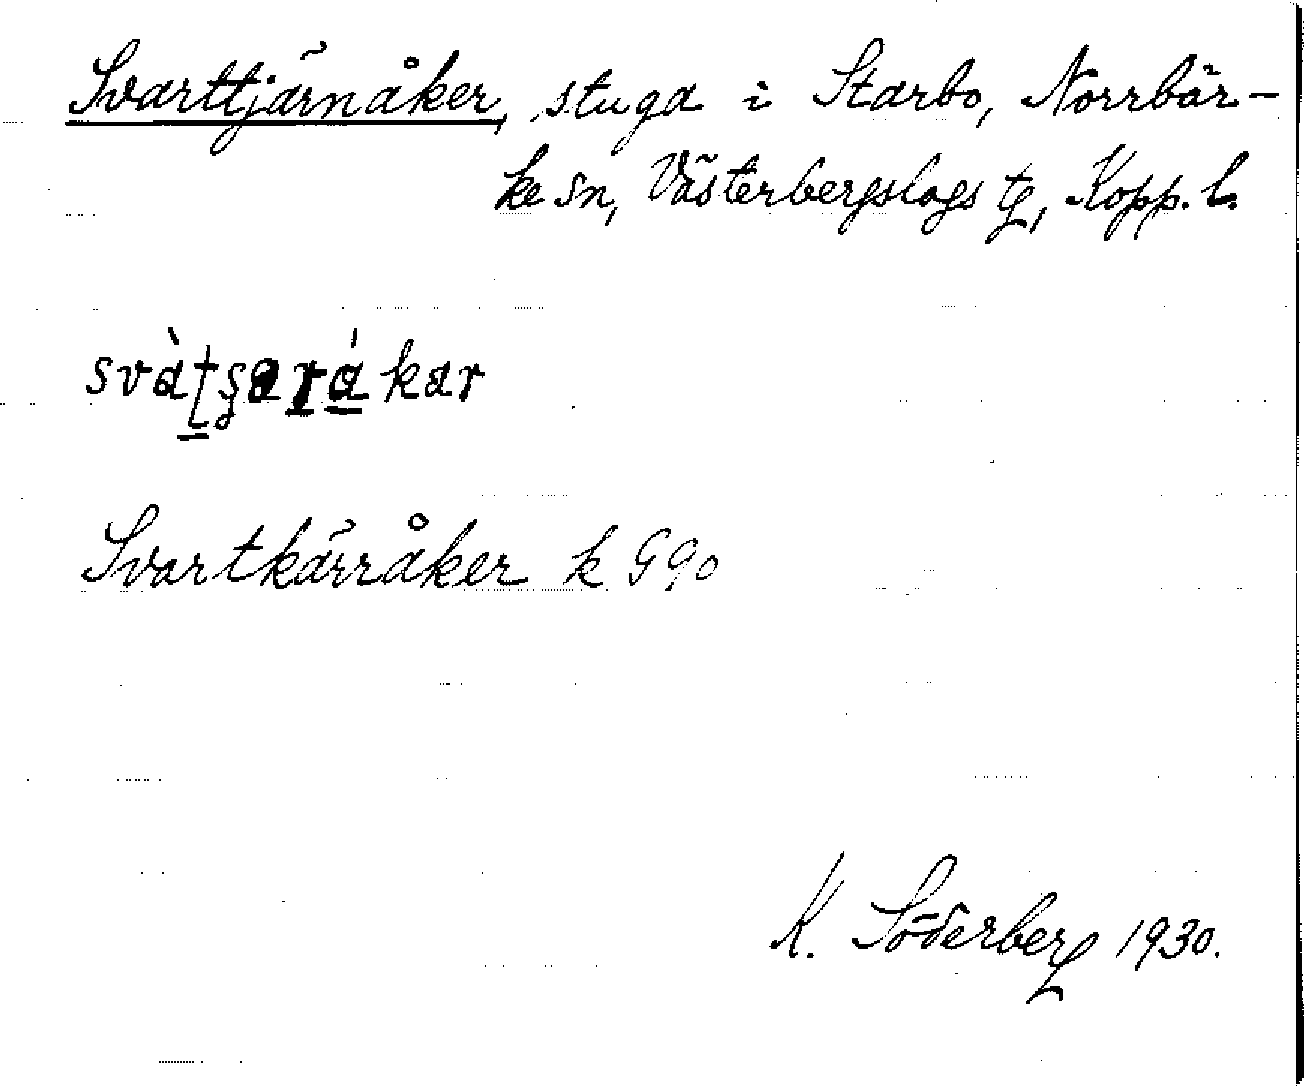 Svarttjärnåker, stuga i Starbo, Norrbär-
ke sn, Västerbergslags tg, Kopp. l.
svàtsaṟákar
Svartkärråker k G90
K. Söderberg 1930.